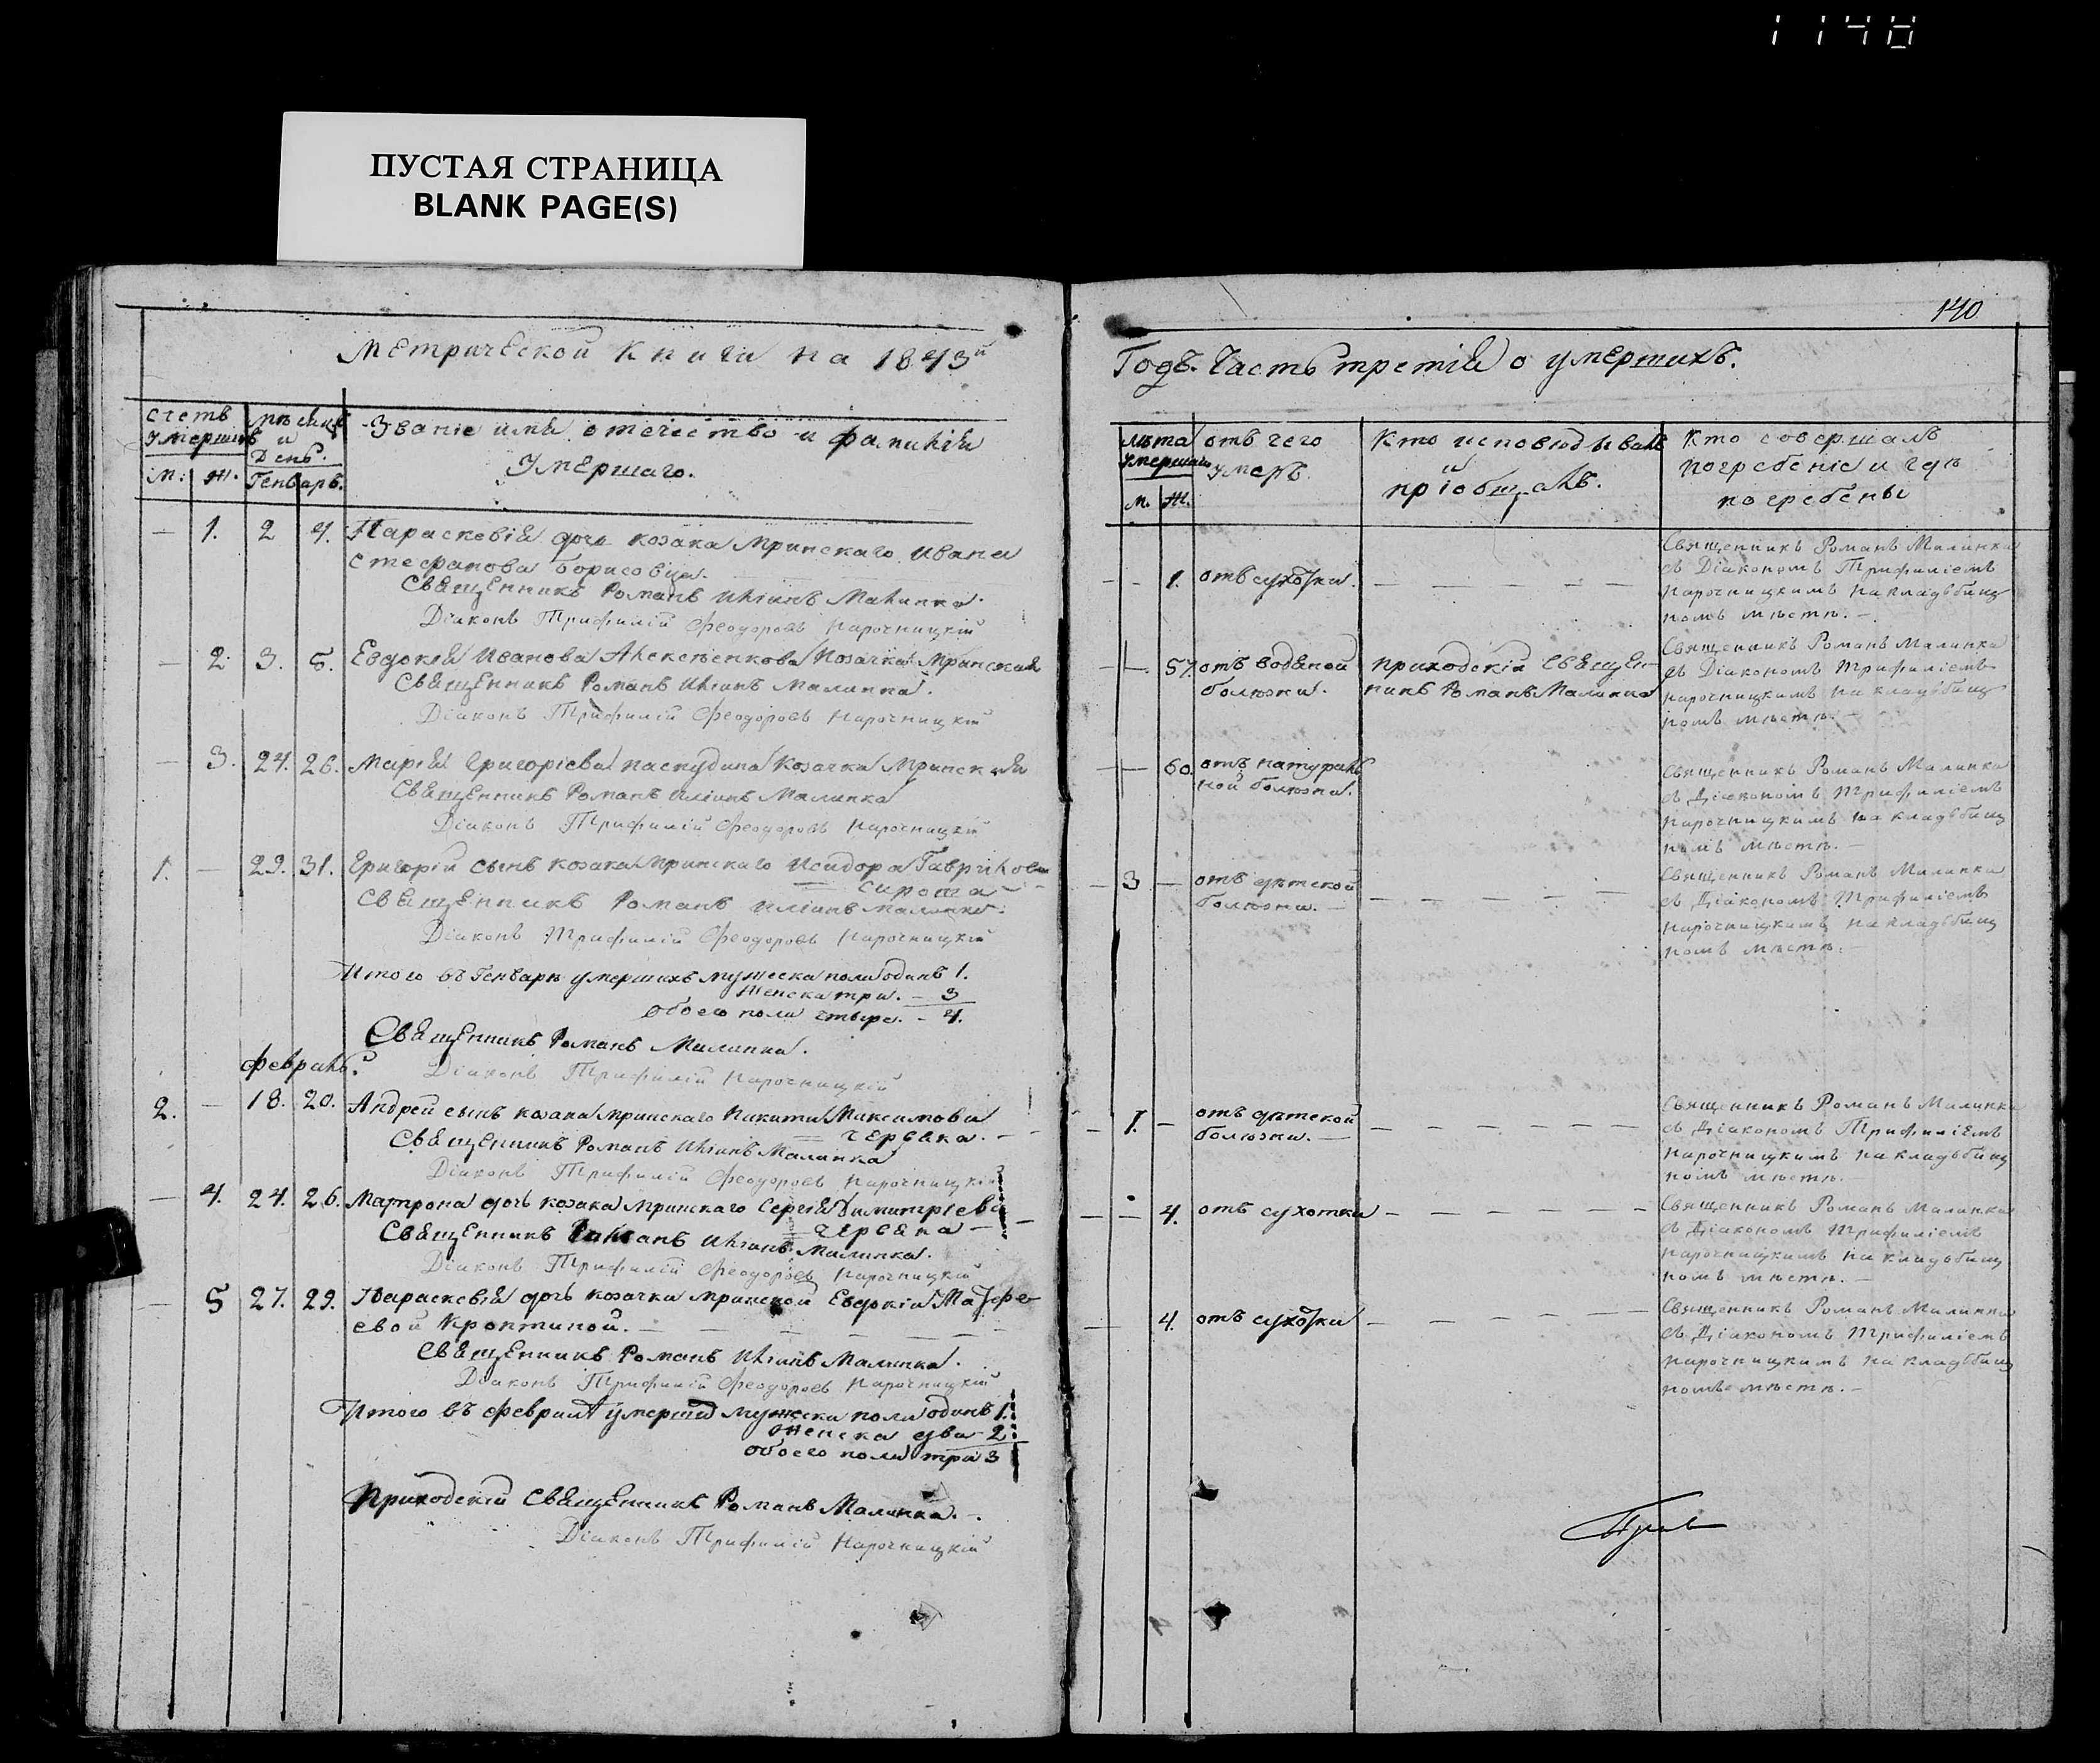 1148
ПУСТАЯ СТРАНИЦА
BLANK PAGE(S)
Метрической Книги на 1843й
счетъ умершихъ
мѣсяцъ и День.
Званіе имя, отечество и фамилія
Умершаго.
М: Ж. Генварь.
— 1. 2 4. Параскевія дочь козака Мринскаго Ивана
Стефанова Борисовца.
Священникъ Романъ Иліинъ Малинка.
Діаконъ Трифилій Феодоровъ Нарочницкій
— 2. 3. 5. Евдокія Иванова Алексѣенкова Козачка Мринская
Священникъ Романъ Иліинъ Малинка.
Діаконъ Трифилій Феодоровъ Нарочницкій
— 3. 24. 26. Марія Григоріева Козачка Мринская
Священникъ Романъ Иліинъ Малинка
Діаконъ Трифилій Феодоровъ Нарочницкій
1. — 29. 31. Григорій сынъ козака Мринскаго Исидора Гаврілова
Сирота —
Священникъ Романъ Иліинъ Малинка.
Діаконъ Трифилій Феодоровъ Нарочницкій
Итого въ Генварѣ умершихъ мужеска пола одинъ 1.
Женска три. — 3
обоего пола — 4.
Священникъ Романъ Малинка.
Февраль.
Діаконъ Трифилій Нарочницкій
2. — 18. 20. Андрей сынъ козака Мринскаго Никиты Максимова
Червяка. —
Священникъ Романъ Иліинъ Малинка
Діаконъ Трифилій Феодоровъ Нарочницкій
— 4. 24. 26. Матрона дочь козака Мринскаго Сергія Димитріева
Червяка —
Священникъ Романъ Иліинъ Малинка.
Діаконъ Трифилій Феодоровъ Нарочницкій
— 5 27. 29. Параскевія дочь козачки Мринской Евдокіи Матфе
евой Кроптиной. —
Священникъ Романъ Иліинъ Малинка.
Діаконъ Трифилій Феодоровъ Нарочницкій
Итого въ Февралѣ мужска пола одинъ 1.
Женска два 2
обоего пола три 3
Приходскій Священникъ Романъ Малинка. —
Діаконъ Трифилій Нарочницкій
140
Годъ. Часть третія о умершихъ.
лѣта умершаго
М. Ж.
отъ чего
умеръ.
Кто исповѣдывалъ
и
пріобщалъ.
Кто совершалъ
погребеніе и гдѣ
погребены
— 1. отъ сухотки. —
Священникъ Романъ Малинка
съ Діакономъ Трифиліемъ
Нарочницкимъ на кладьбищ
номъ мѣстѣ. —
— 57. отъ водяной
болѣзни.
приходскій Священ
никъ Романъ Малинка
Священникъ Романъ Малинка
съ Діакономъ Трифиліемъ
Нарочницкимъ на кладьбищ
номъ мѣстѣ. —
— 60. отъ натураль
ной болѣзни.
Священникъ Романъ Малинка
съ Діакономъ Трифиліемъ
Нарочницкимъ на кладьбищ
номъ мѣстѣ. —
3 — отъ дѣтской
болѣзни. —
Священникъ Романъ Малинка
съ Діакономъ Трифиліемъ
Нарочницкимъ на кладьбищ
номъ мѣстѣ. —
1. — отъ дѣтской
болѣзни. —
Священникъ Романъ Малинка
съ Діакономъ Трифиліемъ
Нарочницкимъ на кладьбищ
номъ мѣстѣ. —
— 4. отъ сухотки —
Священникъ Романъ Малинка
съ Діакономъ Трифиліемъ
Нарочницкимъ на кладьбищ
номъ мѣстѣ. —
— 4. отъ сухотки —
Священникъ Романъ Малинка
съ Діакономъ Трифиліемъ
Нарочницкимъ на кладьбищ
номъ мѣстѣ. —